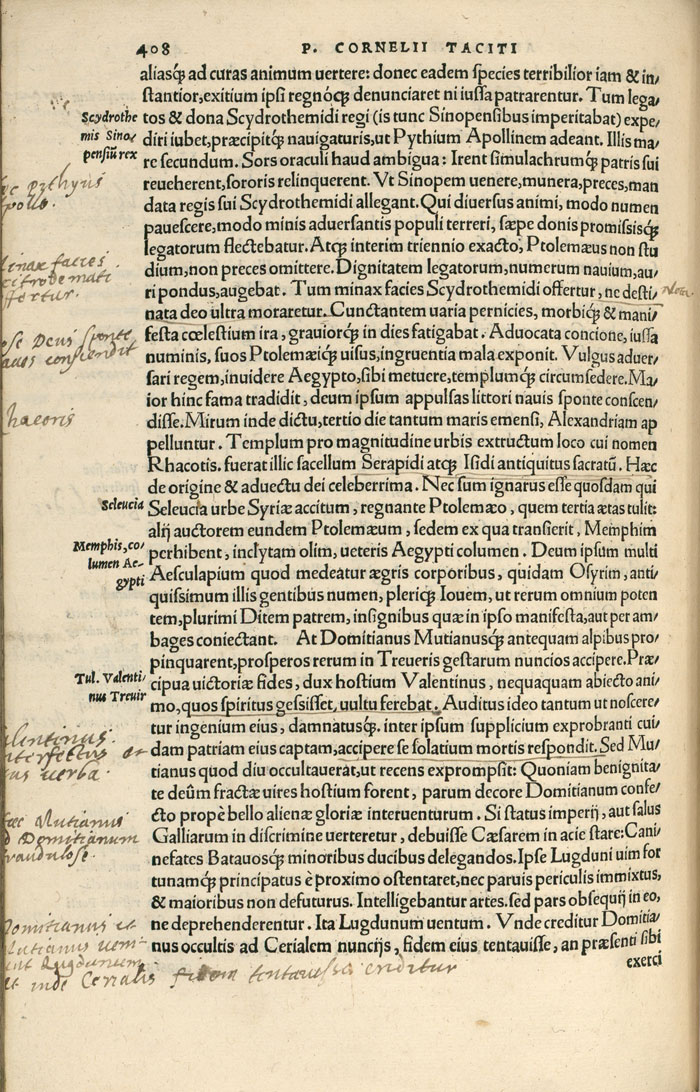 408 P. CORNELII TACITI
aliasq́; ad curas animum uertere: donec eadem species terribilior iam & in/
stantior, exitium ipsi regnóq́; denunciaret ni iussa patrarentur. Tum lega/
tos & dona Scydrothemidi regi (is tunc Sinopensibus imperitabat) expe/
diri iubet, præcipitq́; nauigaturis, ut Pythium Apollinem adeant. Illis ma/
re secundum. Sors oraculi haud ambigua: Irent simulachrumq́; patris sui
reueherent, sororis relinquerent. Vt Sinopem uenere, munera, preces, man
data regis sui Scydrothemidi allegant. Qui diuersus animi, modo numen
pauescere, modo minis aduersantis populi terreri, sæpe donis promissisq́;
legatorum flectebatur. Atq́; interim triennio exacto, Ptolemæus non stu
dium, non preces omittere. Dignitatem legatorum, numerum nauium, au/
ri pondus, augebat. Tum minax facies Scydrothemidi offertur, ne desti/
nata deo ultra moraretur. Cunctantem uaria pernicies, morbiq́; & mani/
festa cœlestium ira, grauiorq́; in dies fatigabat. Aduocata concione, iussa
numinis, suos Ptolemæiq́; uisus, ingruentia mala exponit. Vulgus aduer/
sari regem, inuidere Aegypto, sibi metuere, templumq́; circumsedere. Ma/
ior hinc fama tradidit, deum ipsum appulsas littori nauis sponte conscen/
disse. Mirum inde dictu, tertio die tantum maris emensi, Alexandriam ap
pelluntur. Templum pro magnitudine urbis extructum loco cui nomen
Rhacotis. fuerat illic sacellum Serapidi atq́; Isidi antiquitus sacratũ. Hæc
de origine & aduectu dei celeberrima. Nec sum ignarus esse quosdam qui
Seleucia urbe Syriæ accitum, regnante Ptolemæo, quem tertia ætas tulit:
alij auctorem eundem Ptolemæum, sedem ex qua transierit, Memphim
perhibent, inclytam olim, ueteris Aegypti columen. Deum ipsum multi
Aesculapium quod medeatur ægris corporibus, quidam Osyrim, anti/
quissimum illis gentibus numen, pleriq́; Iouem, ut rerum omnium poten
tem, plurimi Ditem patrem, insignibus quæ in ipso manifesta, aut per am/
bages coniectant. At Domitianus Mutianusq́; antequam alpibus pro/
pinquarent, prosperos rerum in Treueris gestarum nuncios accipere. Præ/
cipua uictoriæ fides, dux hostium Valentinus, nequaquam abiecto ani/
mo, quos spiritus gessisset, uultu ferebat. Auditus ideo tantum ut noscere/
tur ingenium eius, damnatusq́;. inter ipsum supplicium exprobranti cui/
dam patriam eius captam, accipere se solatium mortis respondit. Sed Mu/
tianus quod diu occultauerat, ut recens exprompsit: Quoniam benignita/
te deûm fractæ uires hostium forent, parum decore Domitianum confe/
cto propè bello alienæ gloriæ interuenturum. Si status imperij, aut salus
Galliarum in discrimine uerteretur, debuisse Cæsarem in acie stare: Cani/
nefates Batauosq́; minoribus ducibus delegandos. Ipse Lugduni uim for
tunamq́; principatus è proximo ostentaret, nec paruis periculis immixtus,
& maioribus non defuturus. Intelligebantur artes. sed pars obsequij in eo,
ne deprehenderentur. Ita Lugdunum uentum. Vnde creditur Domitia/
nus occultis ad Cerialem nuncijs, fidem eius tentauisse, an præsenti sibi
exerci
Scydrothe
mis Sino/
pensiũ rex
Seleucia
Memphis, co/
lumen Ae-
gypti
Tul. Valenti/
nus Treuir
pythyus
minax facies
scitrodemati
offertur.
ipse Deus sponte
naues conscendit
rhacoris
Valentinus
interfectus
eius uerba.
haec Mutianus
ad Domitianum
fraudulose.
Domitianus et
Mutianus ueni-
unt Lugdunum
et inde Cerialis fidem tentauisse creditur